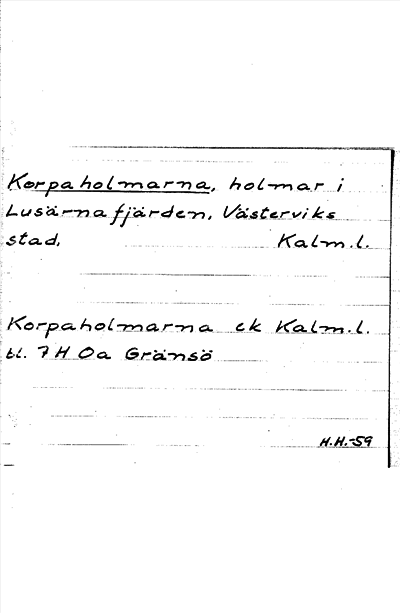 Korpaholmarna, holmar i
Lusärnafjärden, Västerviks
stad, Kalm.l.
Korpaholmarna ek Kalm.l.
bl. 7 H Oa Gränsö
H.H.-59